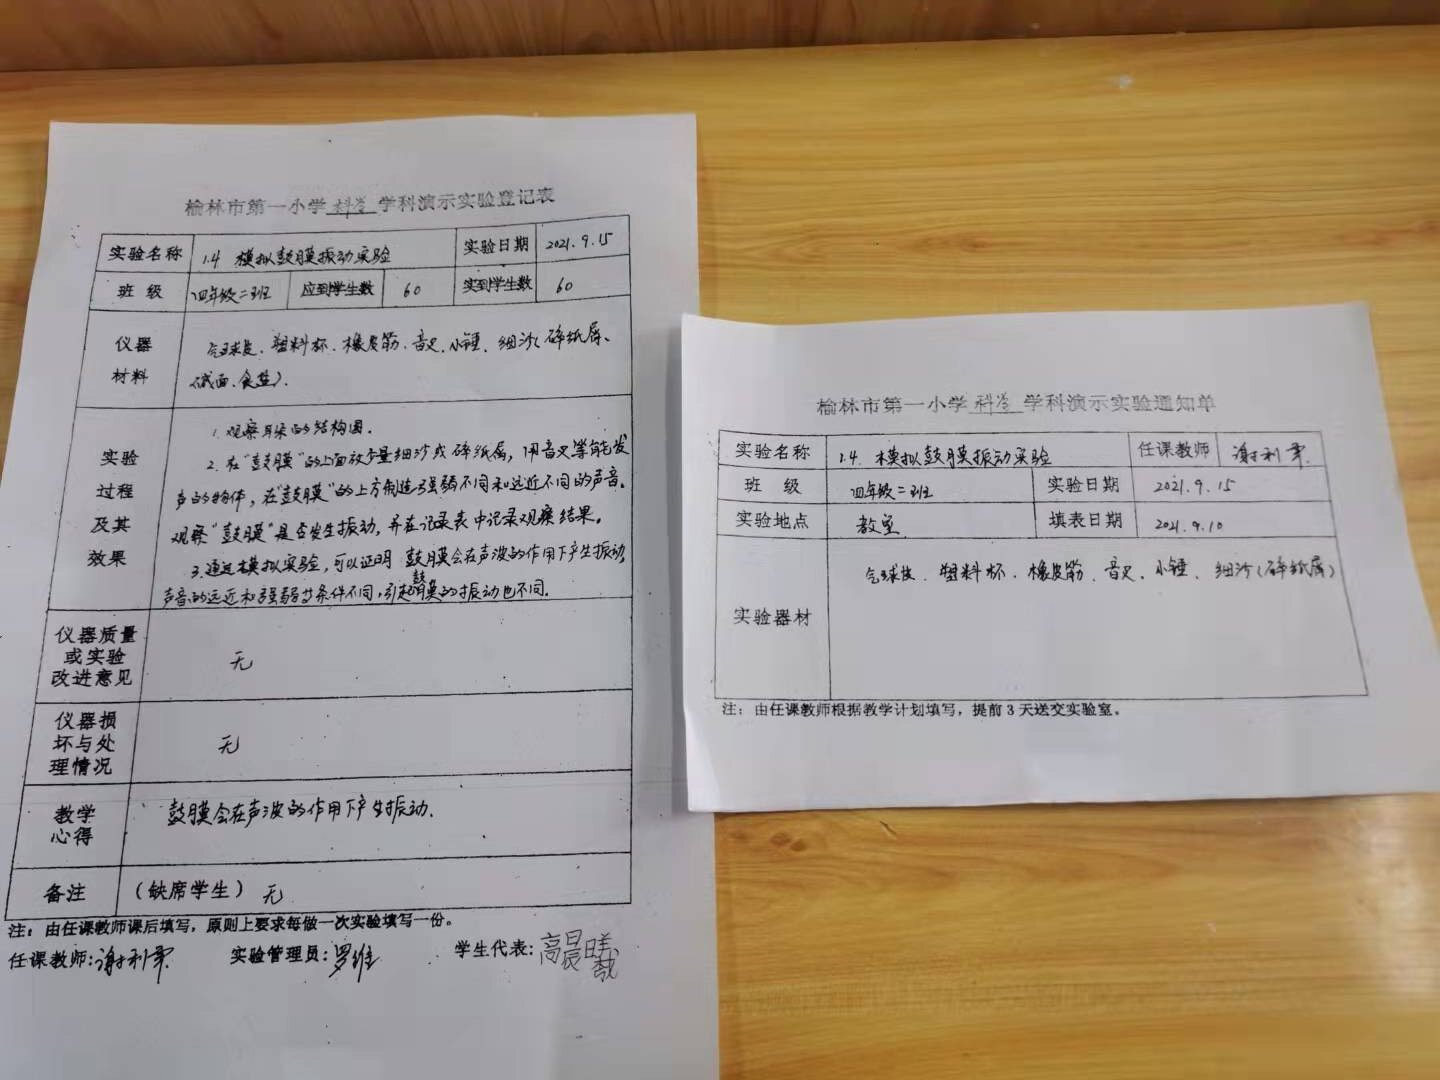 榆林市第一小学科学学科演示实验登记表
实验名称 1.4 模拟鼓膜振动实验 实验日期 2021.9.15
班 级 四年级二班 应到学生数 60 实到学生数 60
仪器材料 气球皮、塑料杯、橡皮筋、音叉、小锤、细沙(碎纸屑、
食盐).
实验过程及其效果 1.观察耳朵的结构图.
2.在"鼓膜"的上面放少量细沙或碎纸屑,用音叉等能发
声的物体,在"鼓膜"的上方制造强弱不同和远近不同的声音。
观察"鼓膜"是否发生振动,并在记录表中记录观察结果。
3.通过模拟实验,可以证明 鼓膜会在声波的作用下产生振动,
声音的远近和强弱等条件不同,引起鼓膜的振动也不同.
仪器质量或实验改进意见 无
仪器损坏与处理情况 无
教学心得 鼓膜会在声波的作用下产生振动.
备注 (缺席学生) 无
注:由任课教师课后填写,原则上要求每做一次实验填写一份。
任课教师:谢利 实验管理员:罗维 学生代表:高晨曦
榆林市第一小学科学学科演示实验通知单
实验名称 1.4. 模拟鼓膜振动实验 任课教师 谢利
班 级 四年级二班 实验日期 2021.9.15
实验地点 教室 填表日期 2021.9.10
实验器材 气球皮、塑料杯、橡皮筋、音叉、小锤、细沙(碎纸屑)
注:由任课教师根据教学计划填写,提前3天送交实验室。